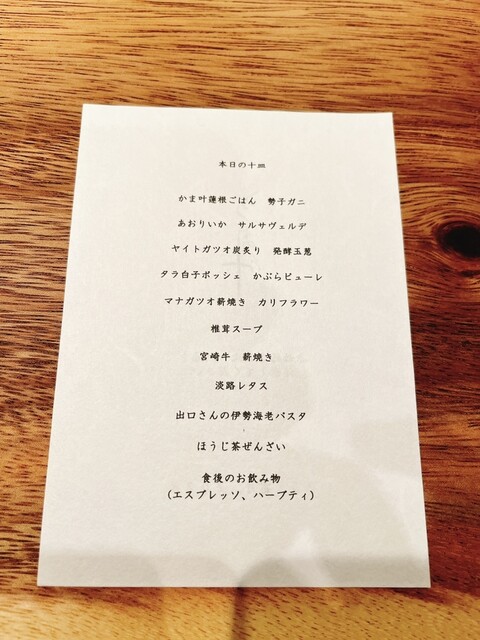 本日の十皿
かま叶蓮根ごはん 勢子ガニ
あおりいか サルサヴェルデ
ヤイトガツオ炭炙り 発酵玉葱
タラ白子ポッシェ かぶらピューレ
マナガツオ薪焼き カリフラワー
椎茸スープ
宮崎牛 薪焼き
淡路レタス
出口さんの伊勢海老パスタ
ほうじ茶ぜんざい
食後のお飲み物
(エスプレッソ、ハーブティ)